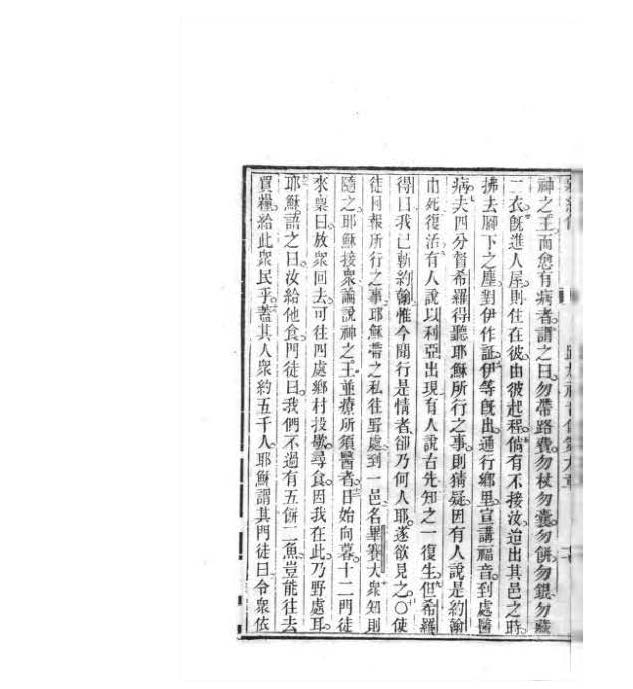 神之王而愈有病者謂之曰勿帶路費勿杖勿囊勿餅勿銀勿藏
二衣旣進人屋則住在彼由彼起程倘有不接汝迨出其邑之時
拂去脚下之塵對伊作証伊等旣出通行鄉里宣講福音到處醫
病夫四分督希羅得聽耶穌所行之事則猜疑因有人說是約翰
由死復活有人說以利亞出現有人說古先知之一復生但希羅
得曰我已斬約翰惟今聞行是情者卻乃何人耶遂欲見之〇使
徒回報所行之事耶穌帶之私往野處到一邑名畢賽大衆知則
隨之耶穌接衆論說神之王並療所須醫者日始向暮十二門徒
來稟曰放衆回去可往四處鄉村投歇尋食因我在此乃野處耳
耶穌語之曰汝給他食門徒曰我們不過有五餅二魚豈能往去
買糧給此衆民乎蓋其人衆約五千人耶穌謂其門徒曰令衆依